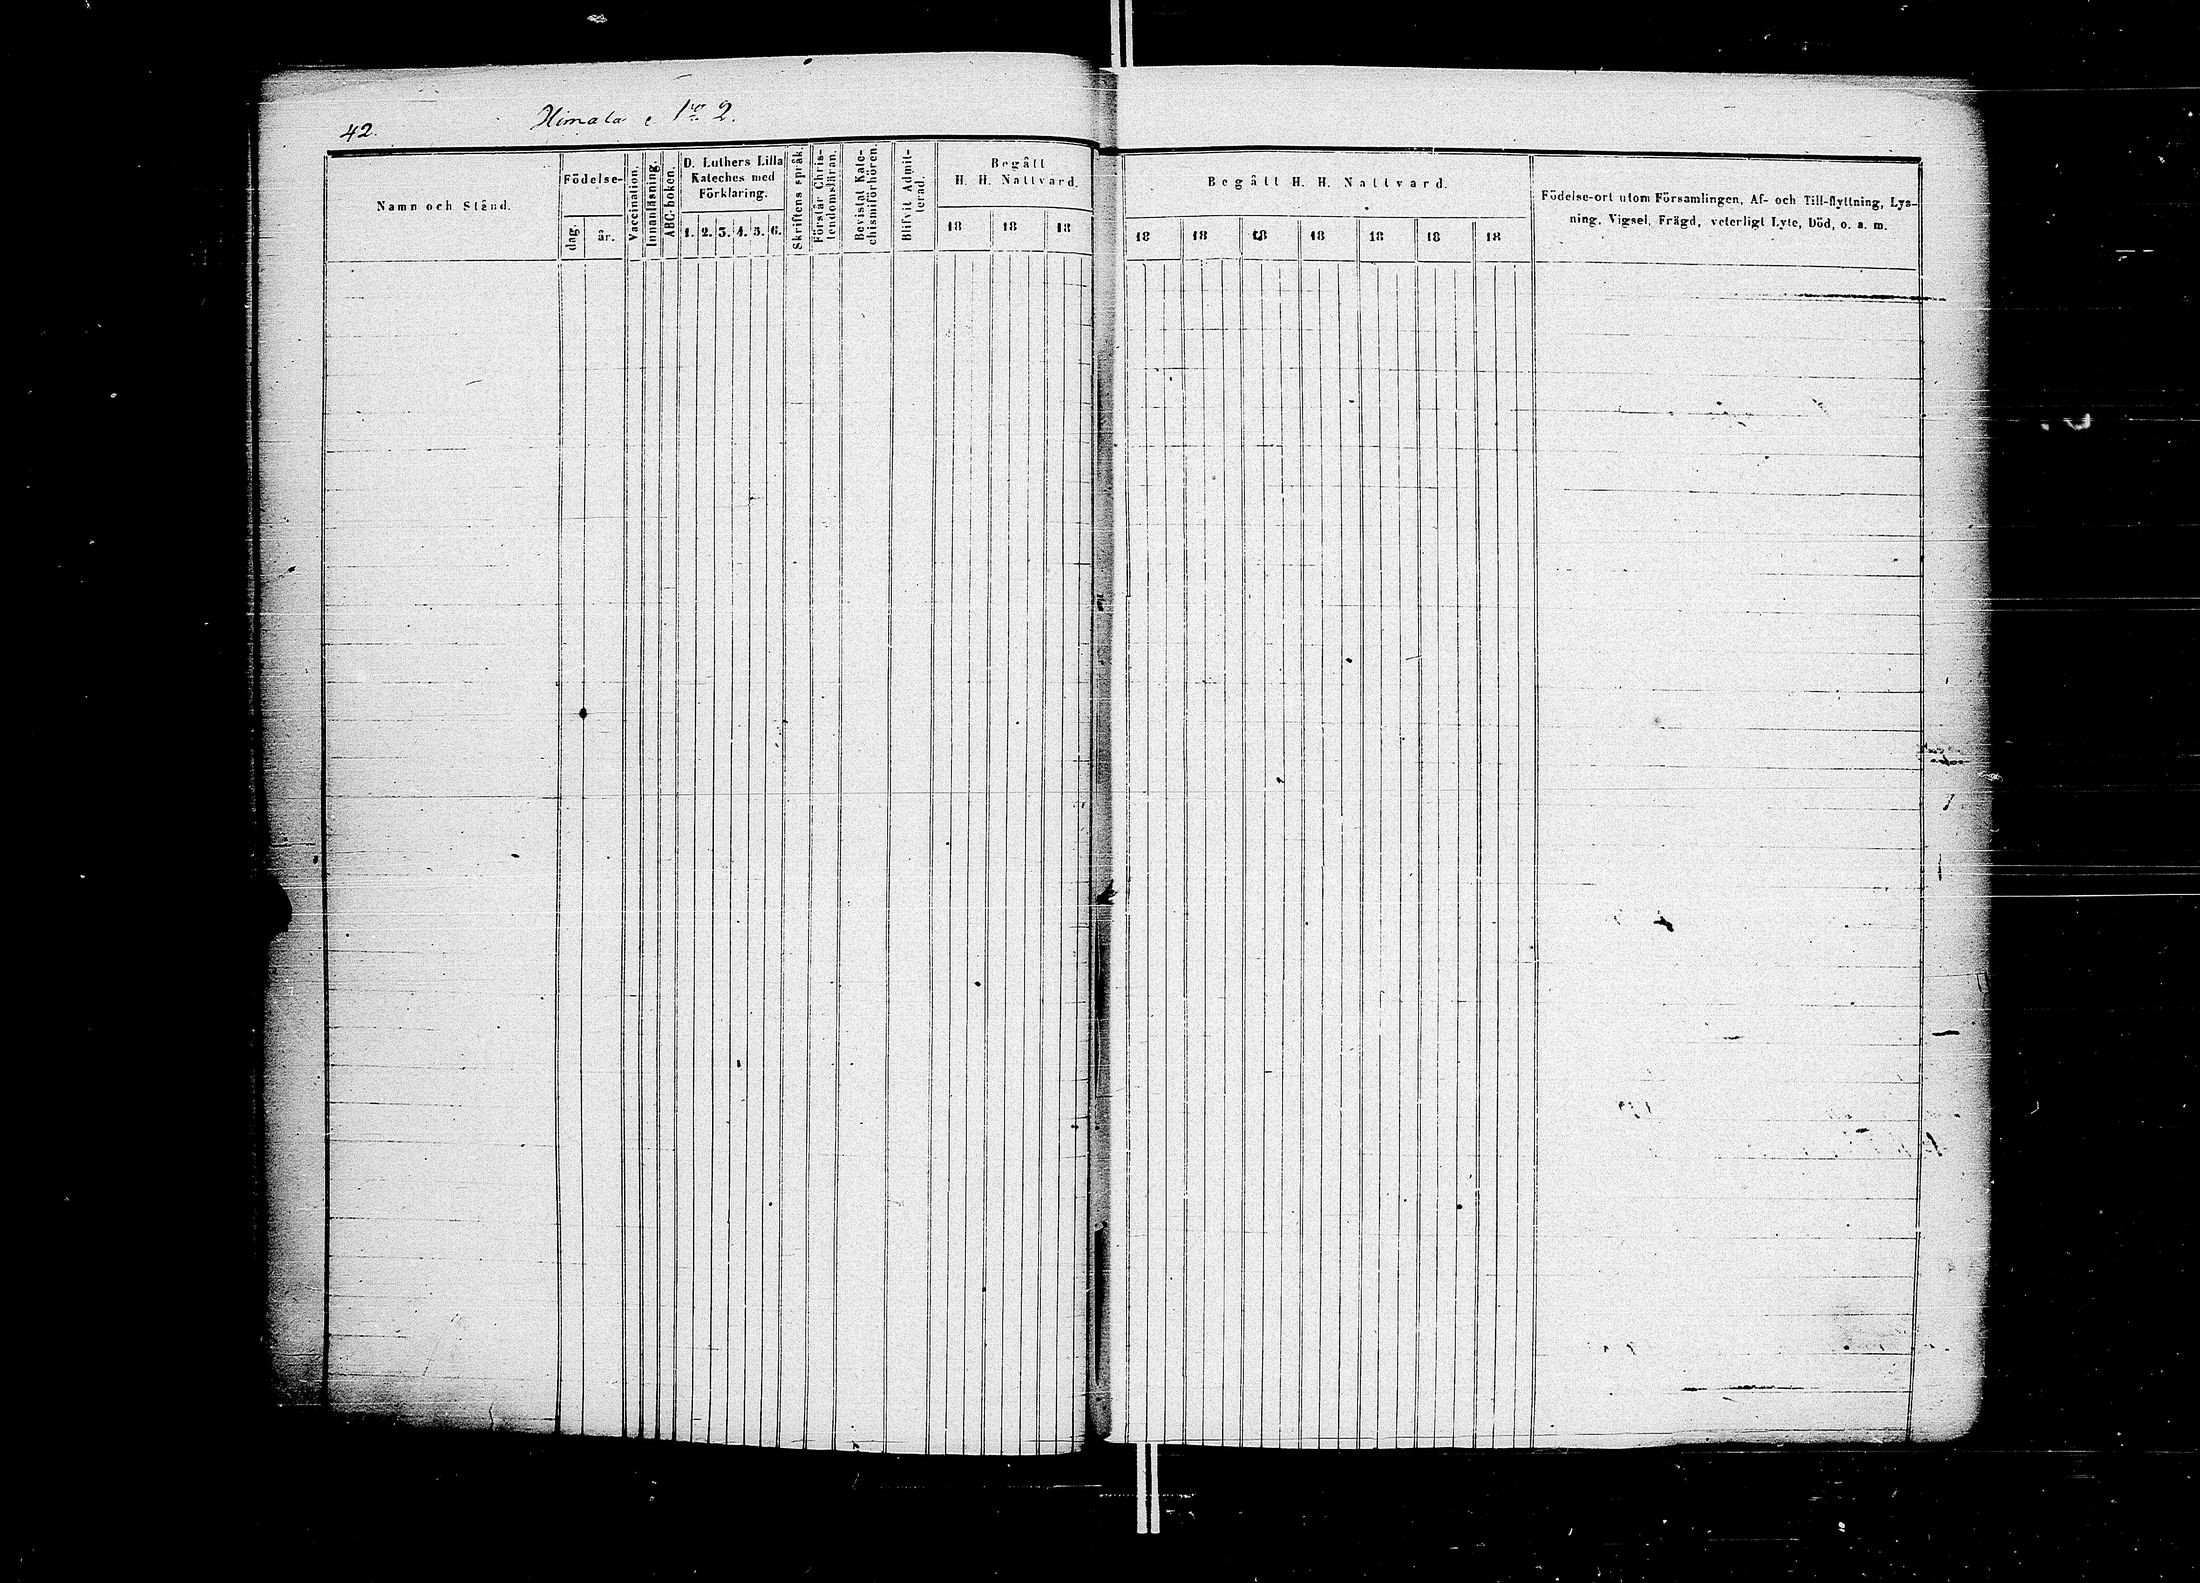 42.
Himala № 2.
Namn och Stånd.
Födelse-
dag.
år.
Vaccination.
Innanläsning.
ABC-boken.
D. Luthers Lilla
Kateches med
Förklaring.
1. 2. 3. 4. 5. 6.
Skriftens språk.
Förstår Chris-
tendomsläran.
Bevistat Kate-
chismiförhören.
Blifvit Admit-
terad.
Begått
H. H. Nattvard.
18 18 18
Begått H. H. Nattvard.
18 18 18 18 18 18 18
Födelse-ort utom Församlingen, Af- och Till-flyttning, Lys-
ning, Vigsel, Frägd, veterligt Lyte, Död, o. s. m.